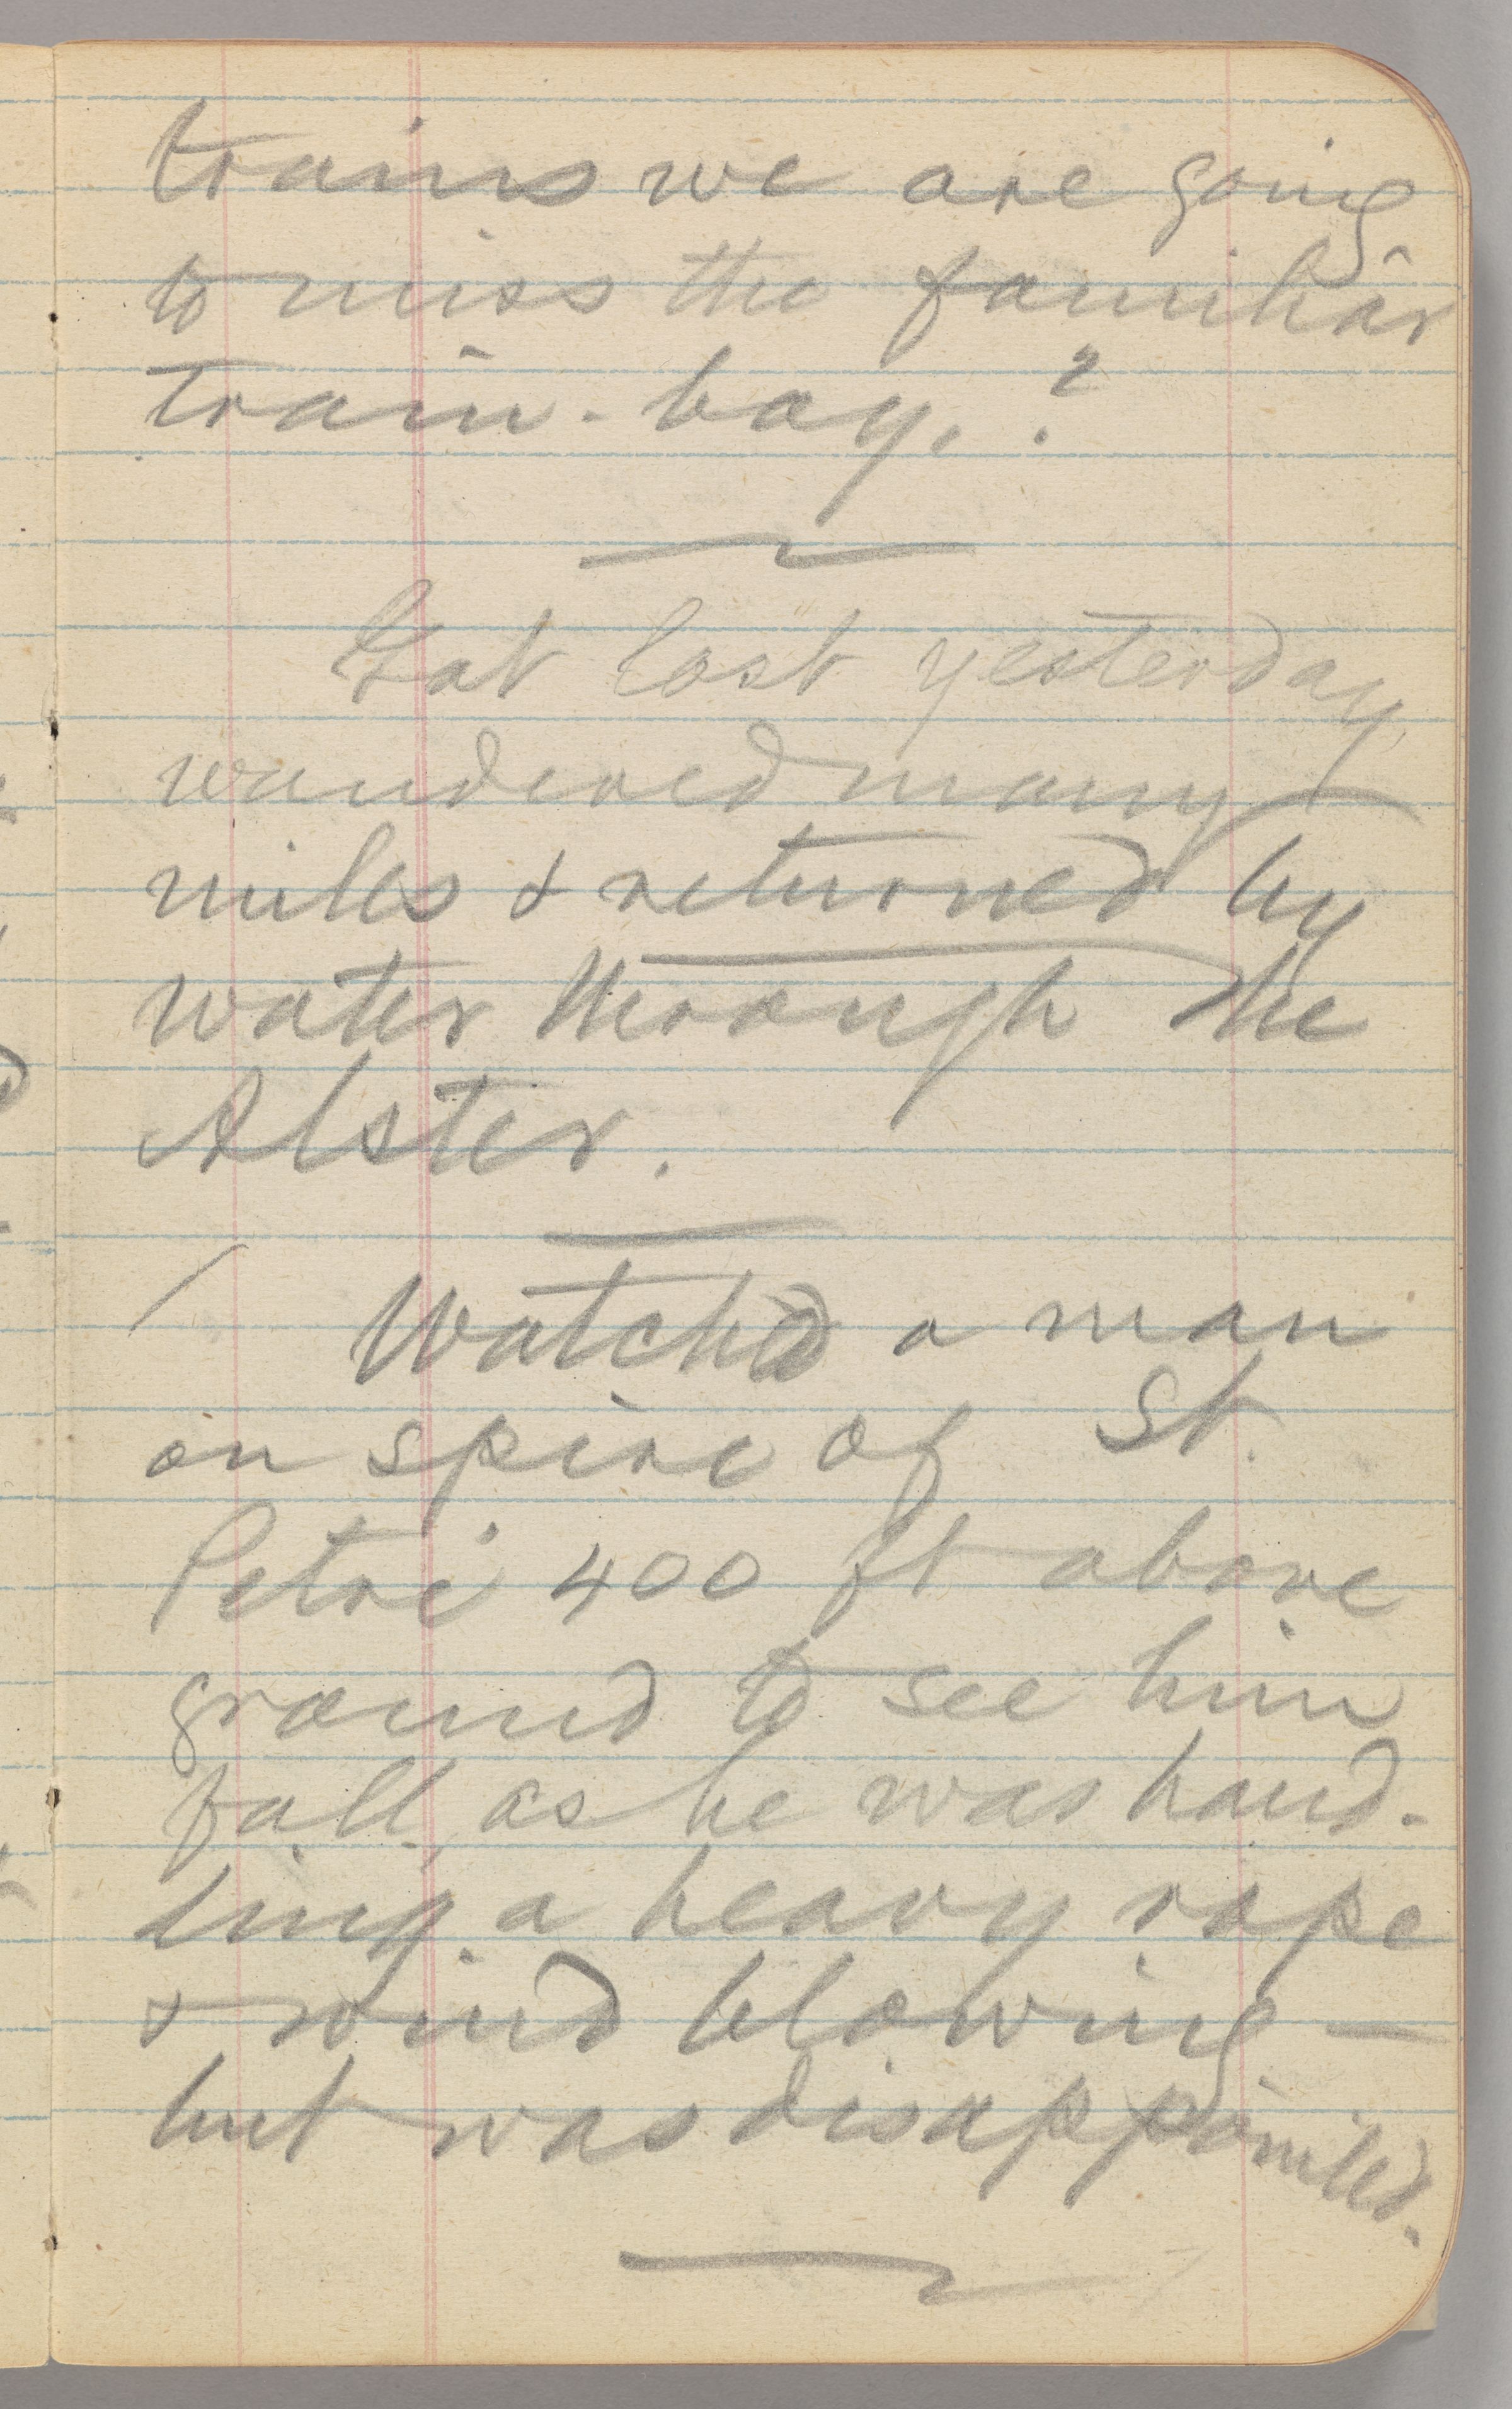 trains we are going
to miss the familiar
train-boy. ?
Got lost yesterday,
wandered many
miles & returned by
water through the
Alster.
Watched a man
on spire of St.
Petri 400 ft above
ground to see him
fall, as he was hand-
ling a heavy rope
& wind blowing —
but was disappointed.